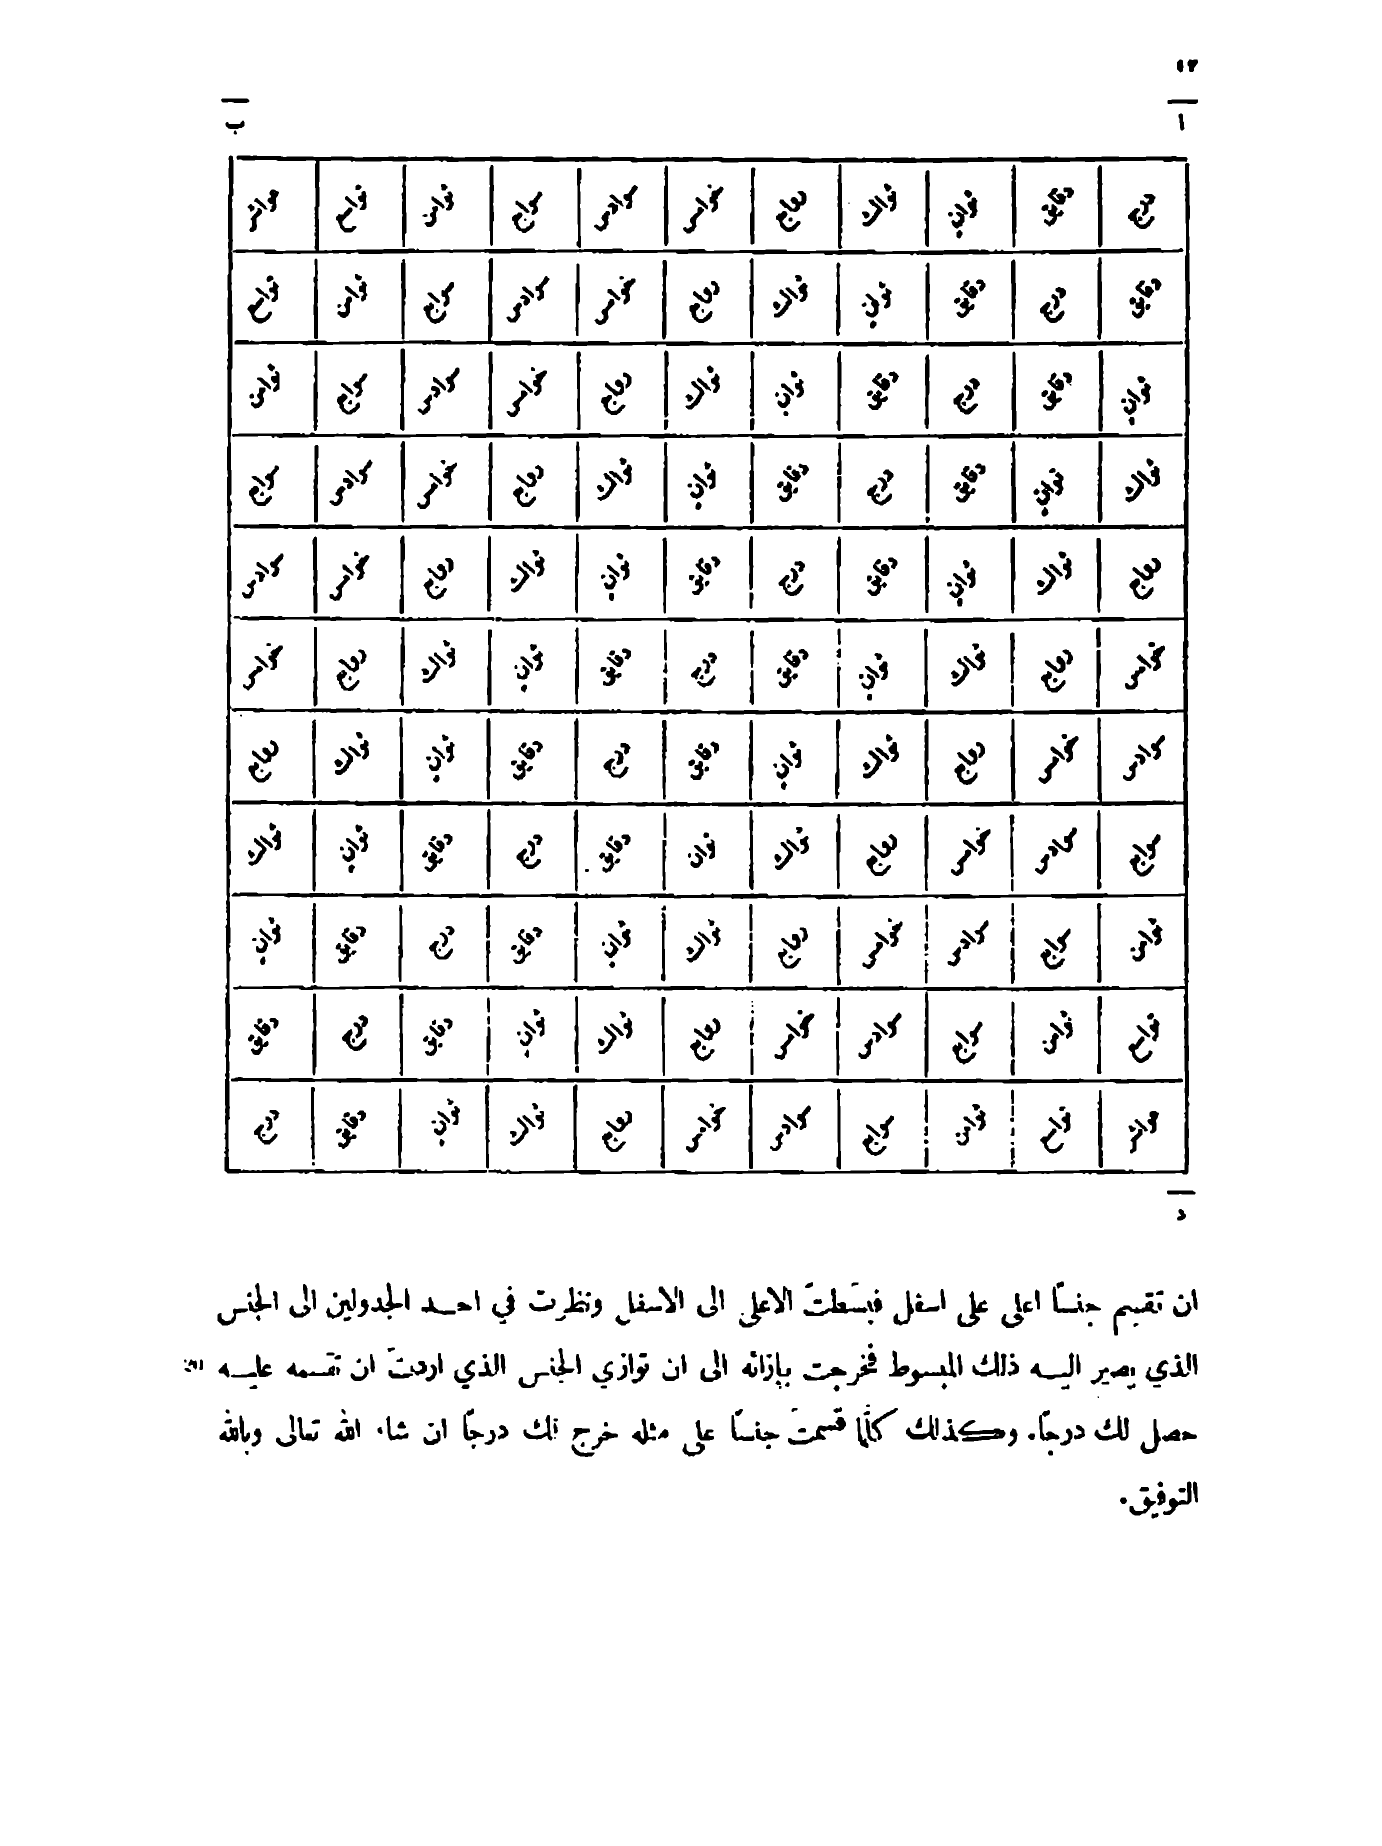 ا ب
درج دقايق ثوانٍ ثوالث روابع خوامس سوادس سوابع ثوامن تواسع عواشر
دقايق درج دقايق ثوانٍ ثوالث روابع خوامس سوادس سوابع ثوامن تواسع
ثوانٍ دقايق درج دقايق ثوانٍ ثوالث روابع خوامس سوادس سوابع ثوامن
ثوالث ثوانٍ دقايق درج دقايق ثوانٍ ثوالث روابع خوامس سوادس سوابع
روابع ثوالث ثوانٍ دقايق درج دقايق ثوانٍ ثوالث روابع خوامس سوادس
خوامس روابع ثوالث ثوانٍ دقايق درج دقايق ثوانٍ ثوالث روابع خوامس
سوادس خوامس روابع ثوالث ثوانٍ دقايق درج دقايق ثوانٍ ثوالث روابع
سوابع سوادس خوامس روابع ثوالث ثوان دقايق درج دقايق ثوانٍ ثوالث
ثوامن سوابع سوادس خوامس روابع ثوالث ثوانٍ دقايق درج دقايق ثوانٍ
تواسع ثوامن سوابع سوادس خوامس روابع ثوالث ثوانٍ دقايق درج دقايق
عواشر تواسع ثوامن سوابع سوادس خوامس روابع ثوالث ثوانٍ دقايق درج
د
ان تقسم جنسًا اعلى على اسفل فبسَطتَ الاعلى الى الاسفل ونظرت في احد الجدولين الى الجنس
الذي يصير اليه ذلك المبسوط فخرجت بإزائه الى ان توازي الجنس الذي اردتَ ان تقسمه عليه
حصل لك درجًا. وكذلك كلّما قسمتَ جنسًا على مثله خرج لك درجًا ان شاء الله تعالى وبالله
التوفيق.